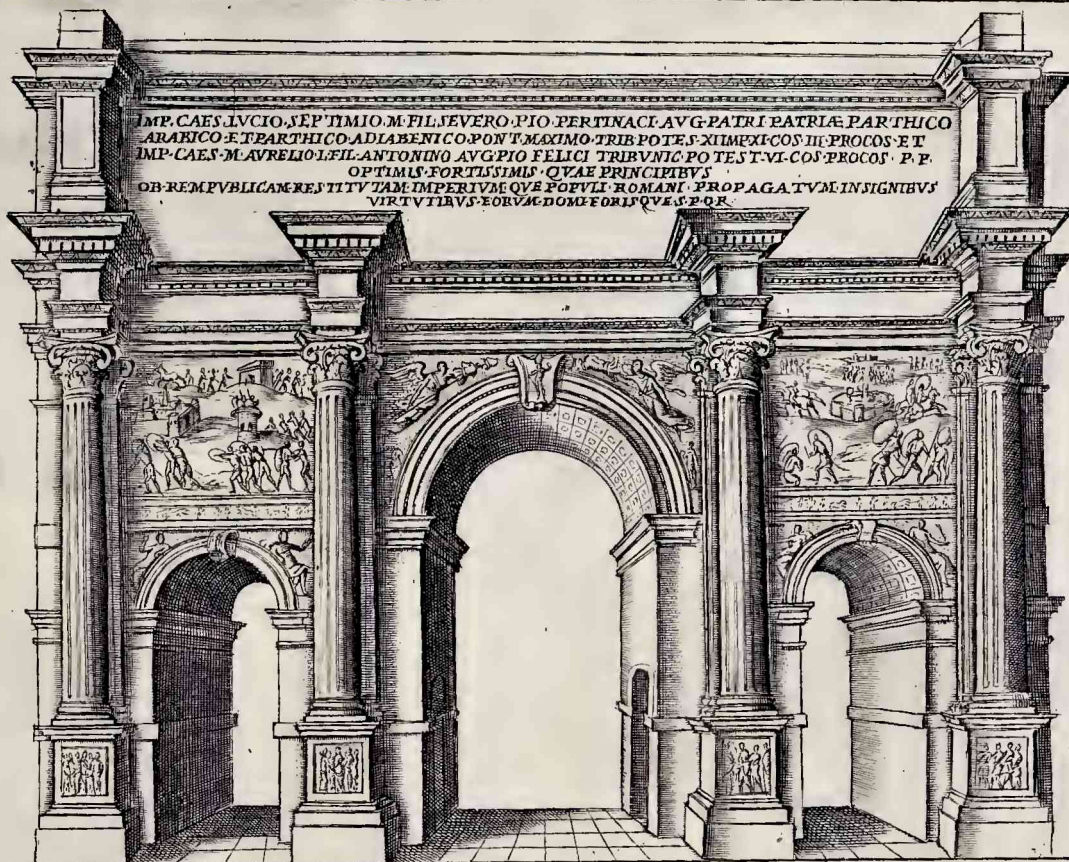 IMP. CAES. LVCIO. SEPTIMIO. M. FIL. SEVERO. PIO. PERTINACI. AVG. PATRI PATRIÆ PARTHICO
ARABICO·ET·PARTHICO·ADIABENICO·PONT·MAXIMO·TRIB·POTES·XI·IMP·XI·COS·III·PROCOS·ET
IMP·CAES·M·AVRELIO·L·FIL·ANTONINO AVG·PIO FELICI TRIBVNIC·POTEST·VI·COS·PROCOS· P. P.
OPTIMIS·FORTISSIMIS·QVAE PRINCIPIBVS
OB·REM·PVBLICAM·RESTITVTAM·IMPERIVM·QVE POPVLI·ROMANI·PROPAGATVM·INSIGNIBVS
VIRTVTIBVS·EORVM·DOMI·FORISQVE·S·P·Q·R